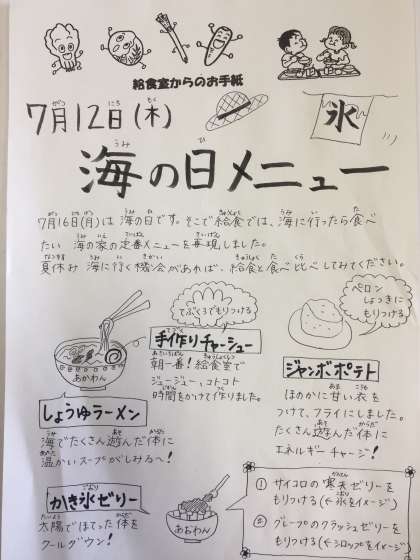 給食室からのお手紙
7月12日(木)
氷
海の日メニュー
7月16日(月)は 海の日です。そこで給食では、海に行ったら食べ
たい 海の家の定番メニューを再現しました。
夏休み 海に行く機会があれば、給食と食べ比べしてみてください。
てぶくろでもりつける
手作りチャーシュー
朝一番！給食室で
ジュージュー、コトコト
時間をかけて作りました。
ペロン
しょっきに
もりつける
ジャンボポテト
ほのかに甘い衣を
つけて、フライにしました。
たくさん遊んだ体に
エネルギーチャージ！
あかわん
しょうゆラーメン
海でたくさん遊んだ体に
温かいスープがしみる〜！
かき氷ゼリー
太陽でほてった体を
クールダウン！
あおわん
① サイコロの寒天ゼリーを
もりつける(←氷をイメージ)
② グレープのクラッシュゼリーを
もりつける(←シロップをイメージ)